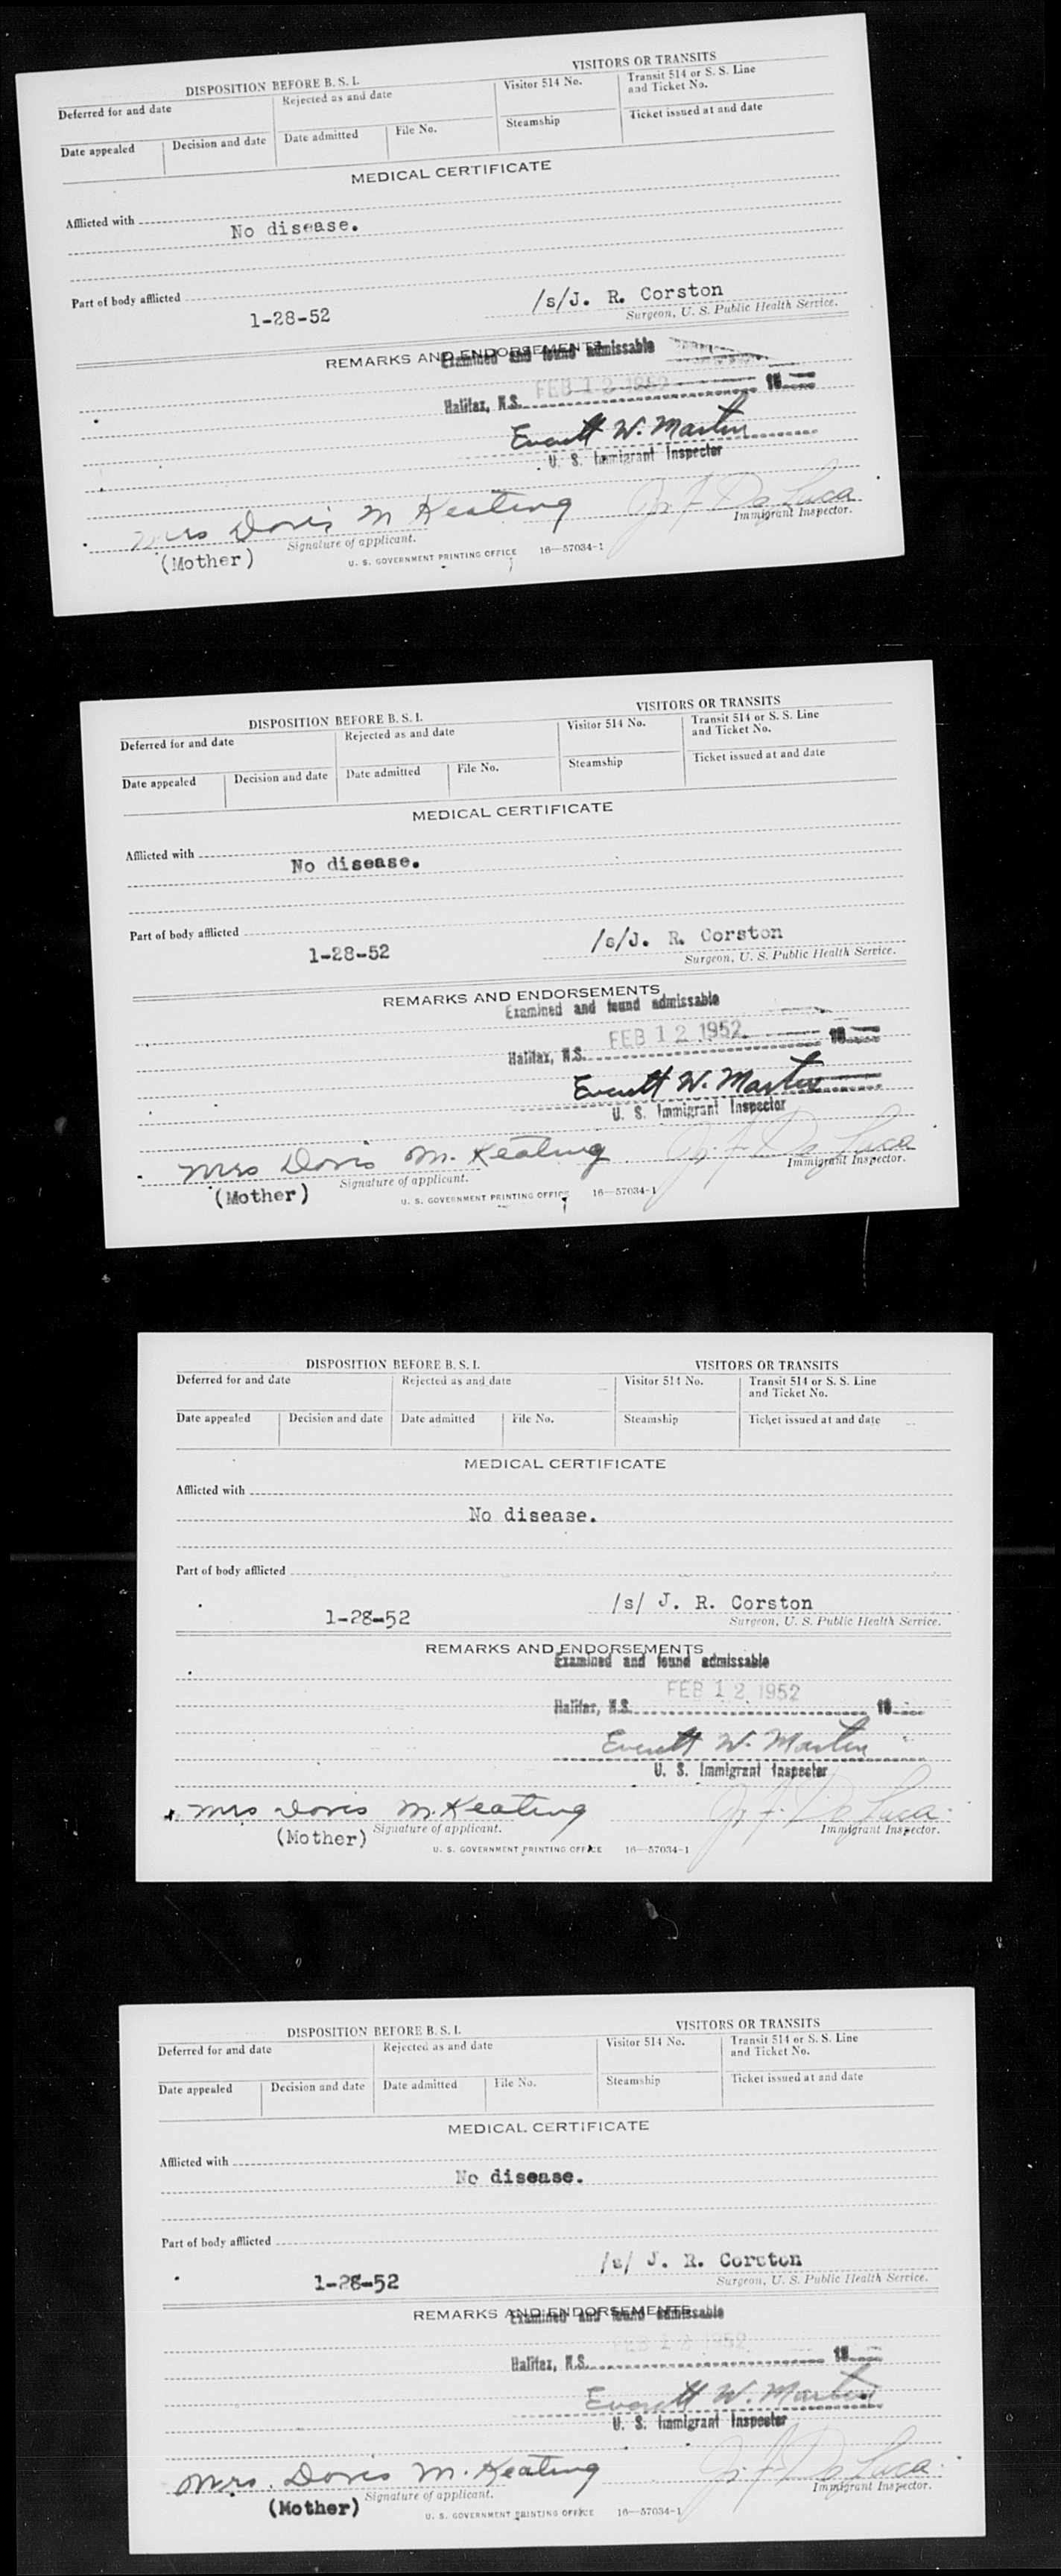 DISPOSITION BEFORE B. S. I. VISITORS OR TRANSITS
Deferred for and date Rejected as and date Visitor 514 No. Transit 514 or S. S. Line
and Ticket No.
Date appealed Decision and date Date admitted File No. Steamship Ticket issued at and date
MEDICAL CERTIFICATE
Afflicted with
No disease.
Part of body afflicted
1-28-52 /s/J. R. Corston
Surgeon, U. S. Public Health Service.
REMARKS AND ENDORSEMENTS
Examined and found admissable
Halifax, N.S. FEB 12 1952 19
Everett W. Martin
U. S. Immigrant Inspector
Mrs Doris M Keating
(Mother) Signature of applicant. Immigrant Inspector.
U. S. GOVERNMENT PRINTING OFFICE 16—57034-1
DISPOSITION BEFORE B. S. I. VISITORS OR TRANSITS
Deferred for and date Rejected as and date Visitor 514 No. Transit 514 or S. S. Line
and Ticket No.
Date appealed Decision and date Date admitted File No. Steamship Ticket issued at and date
MEDICAL CERTIFICATE
Afflicted with
No disease.
Part of body afflicted
1-28-52 /s/J. R. Corston
Surgeon, U. S. Public Health Service.
REMARKS AND ENDORSEMENTS
Examined and found admissable
Halifax, N.S. FEB 12 1952 19
Everett W. Martin
U. S. Immigrant Inspector
Mrs Doris M. Keating
(Mother) Signature of applicant. Immigrant Inspector.
U. S. GOVERNMENT PRINTING OFFICE 16—57034-1
DISPOSITION BEFORE B. S. I. VISITORS OR TRANSITS
Deferred for and date Rejected as and date Visitor 514 No. Transit 514 or S. S. Line
and Ticket No.
Date appealed Decision and date Date admitted File No. Steamship Ticket issued at and date
MEDICAL CERTIFICATE
Afflicted with
No disease.
Part of body afflicted
1-28-52 /s/ J. R. Corston
Surgeon, U. S. Public Health Service.
REMARKS AND ENDORSEMENTS
Examined and found admissable
Halifax, N.S. FEB 12 1952 19
Everett W. Martin
U. S. Immigrant Inspector
Mrs Doris M. Keating
(Mother) Signature of applicant. Immigrant Inspector.
U. S. GOVERNMENT PRINTING OFFICE 16—57034-1
DISPOSITION BEFORE B. S. I. VISITORS OR TRANSITS
Deferred for and date Rejected as and date Visitor 514 No. Transit 514 or S. S. Line
and Ticket No.
Date appealed Decision and date Date admitted File No. Steamship Ticket issued at and date
MEDICAL CERTIFICATE
Afflicted with
No disease.
Part of body afflicted
1-28-52 /s/ J. R. Corston
Surgeon, U. S. Public Health Service.
REMARKS AND ENDORSEMENTS
Examined and found admissable
Halifax, N.S. FEB 12 1952 19
Everett W. Martin
U. S. Immigrant Inspector
Mrs. Doris M. Keating
(Mother) Signature of applicant. Immigrant Inspector.
U. S. GOVERNMENT PRINTING OFFICE 16—57034-1